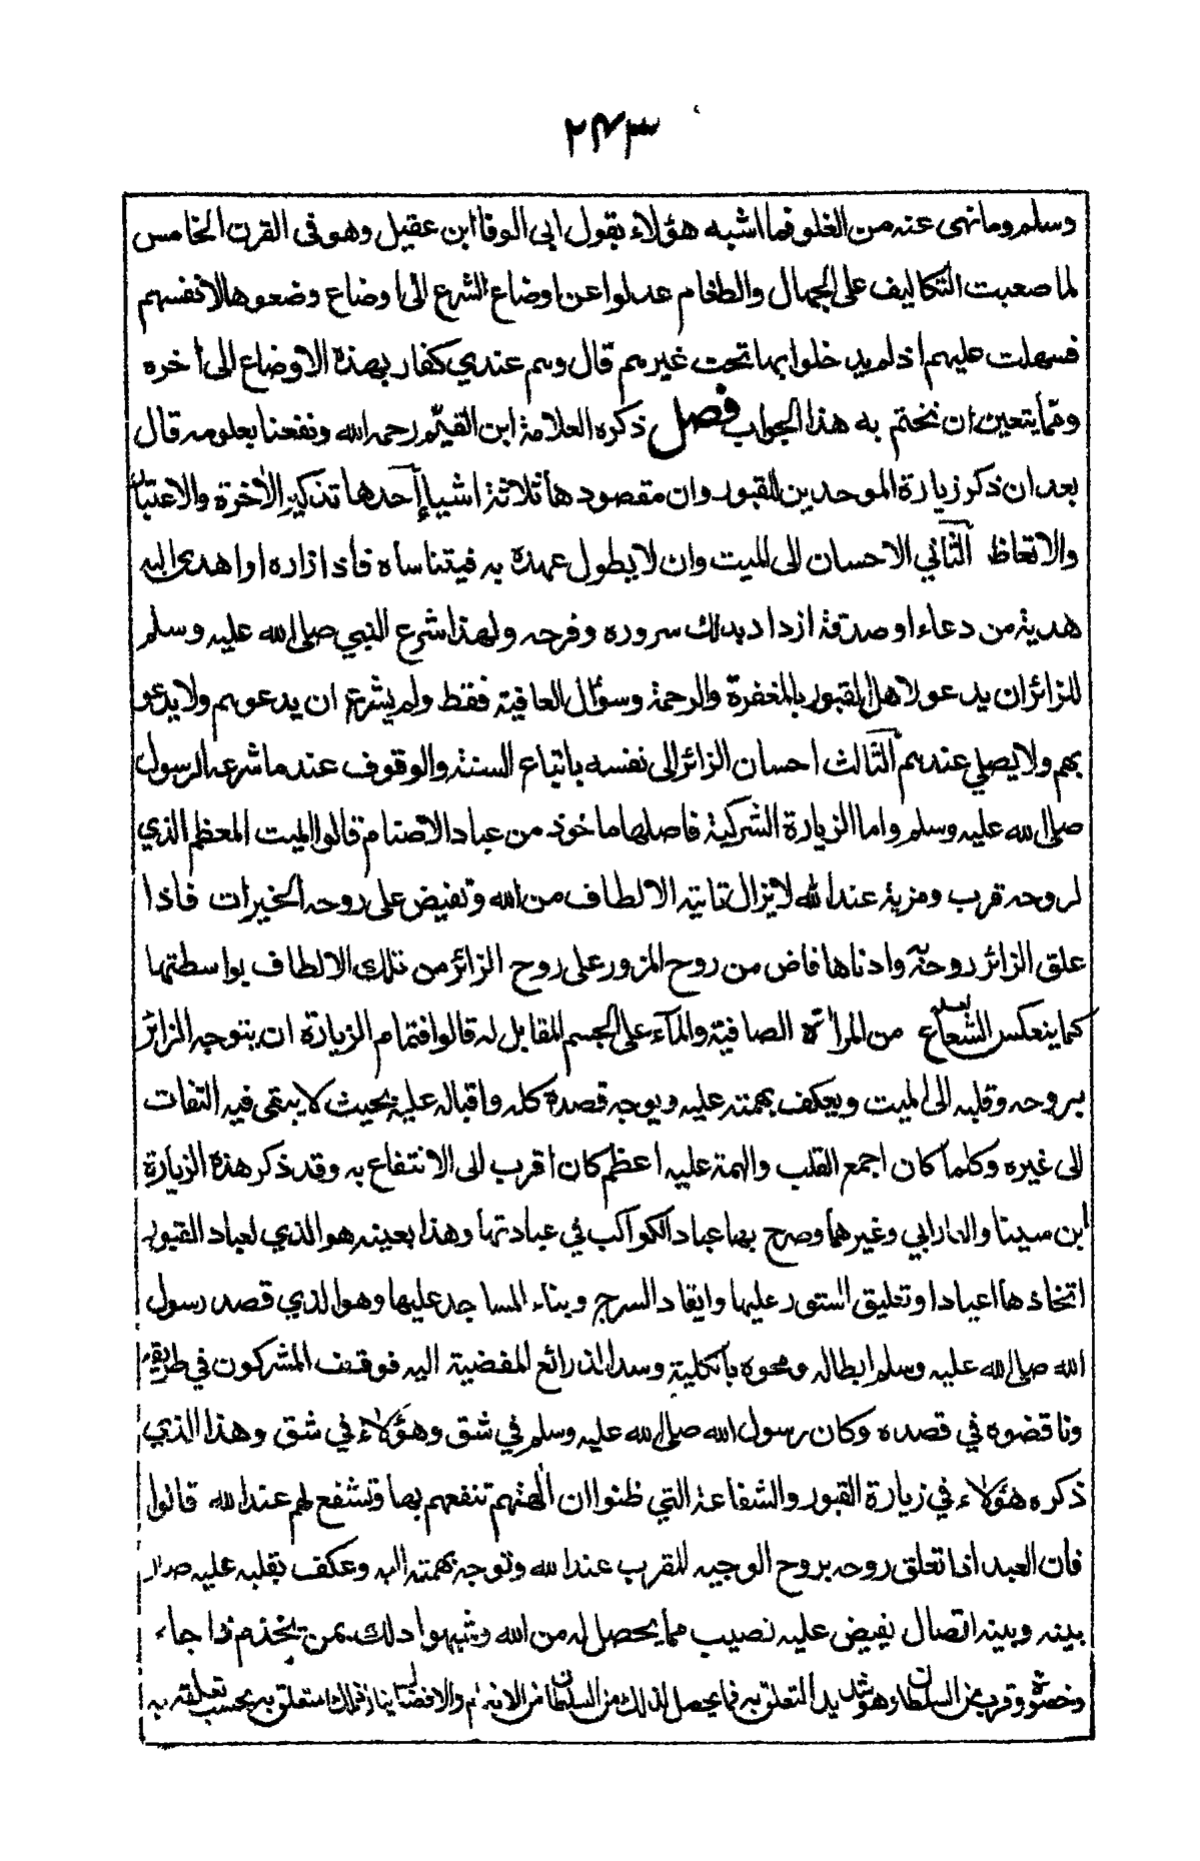 ٢٤٣
وسلم وما نهى عنه من الغلو فما اشبه هؤلاء بقول ابي الوفا ابن عقيل وهو في القرن الخامس
لما صعبت التكاليف على الجهال والطغام عدلوا عن اوضاع الشرع الى اوضاع وضعوها لانفسهم
فسهلت عليهم اذ لم يدخلوا بها تحت غيرهم قال وهم عندي كفار بهذه الاوضاع الى أخره
ومما يتعين ان نختم به هذا الجواب فصل ذكره العلامة ابن القيم رحمه الله ونفعنا بعلومه قال
بعد ان ذكر زيارة الموحدين للقبور وان مقصودها ثلاثة اشياء آحدها تذكير الآخرة والاعتبار
والاتعاظ الثآني الاحسان الى الميت وان لا يطول عهده به فيتناساه فأذا زاره او اهدى اليه
هدية من دعاء او صدقة ازداد بذلك سروره وفرحه ولهذا شرع النبي صلى الله عليه وسلم
للزائر ان يدعو لاهل القبور بالمغفرة والرحمة وسؤال العافية فقط ولم يشرع ان يدعوهم ولا يدعو
بهم ولا يصلي عندهم الثآلث احسان الزائر الى نفسه باتباع السنة والوقوف عند ما شرعه الرسول
صلى الله عليه وسلم واما الزيارة الشركية فاصلها ماخوذ من عباد الاصنام قالوا الميت المعظم الذي
لروحه قرب ومزية عند الله لا يزال تاتيه الالطاف من الله وتفيض على روحه الخيرات فاذا
علق الزائر روحه به وادناها فاض من روح المزور على روح الزائر من تلك الالطاف بواسطتها
كما ينعكس الشعاع من المرأة الصافية والمآء على الجسم المقابل له قالوا فتمام الزيارة ان يتوجه الزائر
بروحه وقلبه الى الميت ويعكف بهمته عليه ويوجه قصده كله واقباله عليه بحيث لا يبقى فيه التفات
الى غيره وكلما كان اجمع القلب والهمة عليه اعظم كان اقرب الى الانتفاع به وقد ذكر هذه الزيارة
ابن سينا والفارابي وغيرهما وصرح بها عباد الكواكب في عبادتها وهذا بعينه هو الذي لعباد القبور
اتخاذها اعيادا وتعليق الستور عليها وايقاد السرج وبناء المساجد عليها وهو الذي قصد رسول
الله صلى الله عليه وسلم ابطاله ومحوه بالكلية وسد الذرائع المفضية اليه فوقف المشركون في طريقه
وناقضوه في قصده وكان رسول الله صلى الله عليه وسلم في شق وهؤلاء في شق وهذا الذي
ذكره هؤلاء في زيارة القبور والشفاعة التي ظنوا ان الهتهم تنفعهم بها وتشفع لهم عند الله قالوا
فان العبد اذا تعلق روحه بروح الوجيه المقرب عند الله وتوجه بهمته اليه وعكف بقلبه عليه صار
بينه وبينه اتصال يفيض عليه نصيب مما يحصل له من الله وشبهوا ذلك بمن يخدم ذا جاه
وحظوة وقرب من السلطان وهو شديد التعلق به فما يحصل لذلك من السلطان من الانعام والافضال ينال ذلك المتعلق به بحسب تعلقه به